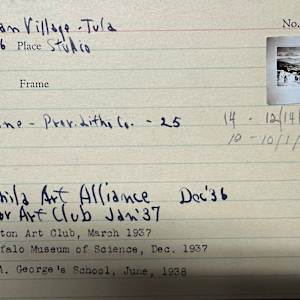 an Village - Tula
No.
6 Place Studio
Frame
ne - Prov. Litho Co. - 25
14 - 12/14/
10 - 10/1/
hila Art Alliance Dec '36
or Art Club Jan '37
ton Art Club, March 1937
falo Museum of Science, Dec. 1937
. George's School, June, 1938